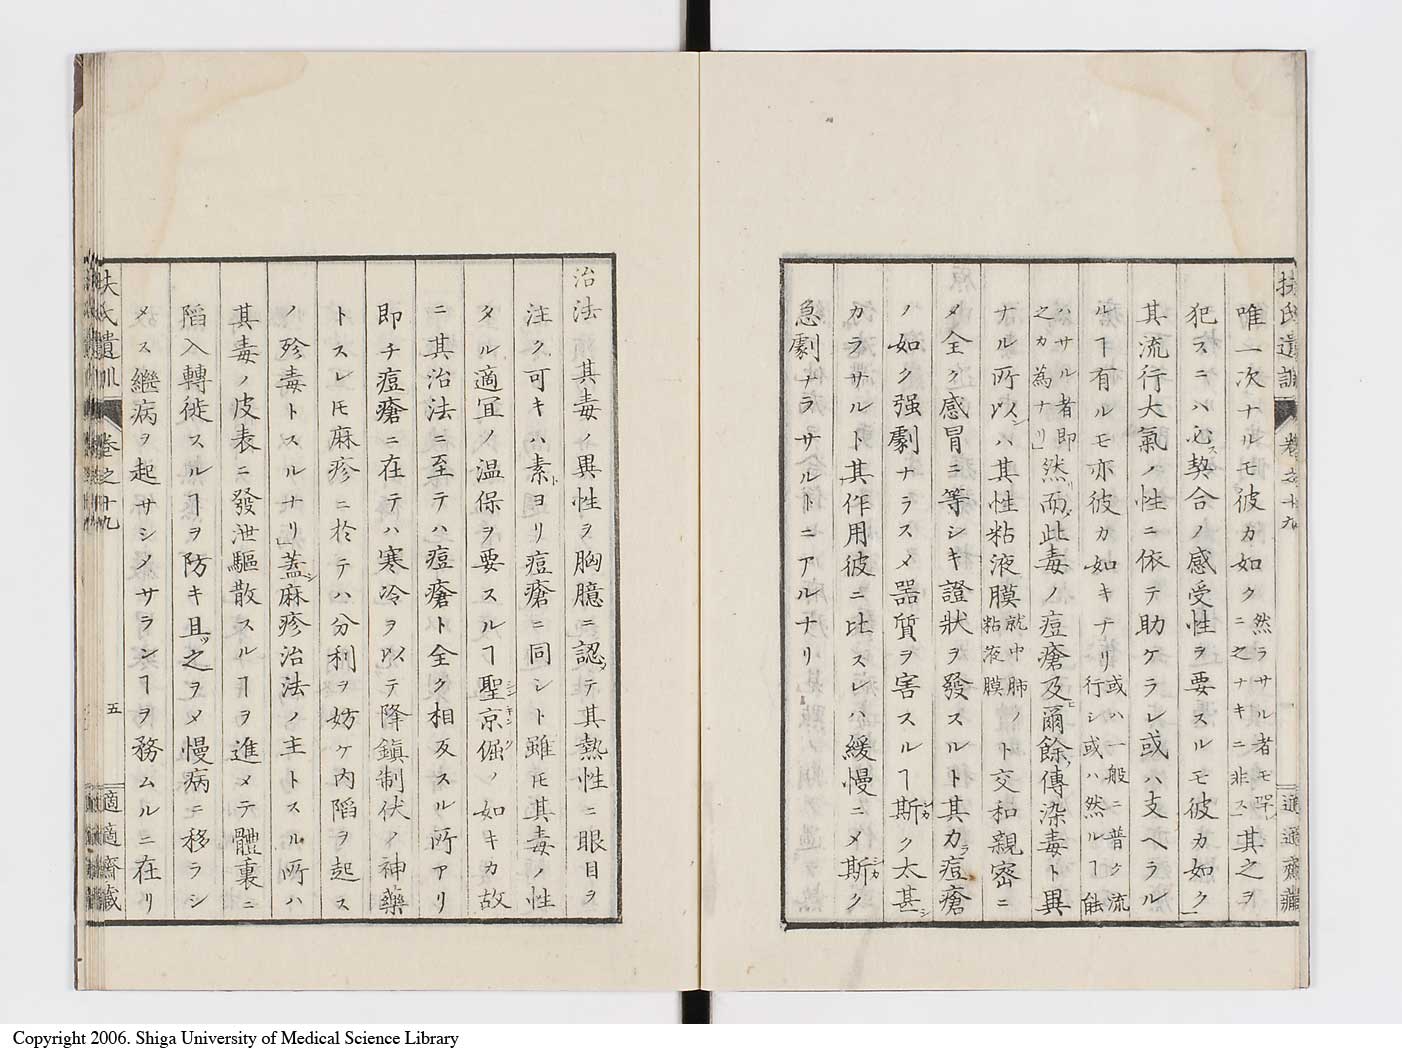 扶氏遺訓 卷之十九 適適齋藏
唯一次ナルモ彼カ如ク然ラサル者モ罕ニ之ナキニ非ス其之ヲ
犯スニハ必ス契合ノ感受性ヲ要スルモ彼カ如ク
其流行大氣ノ性ニ依テ助ケラレ或ハ支ヘラル
ルヿ有ルモ亦彼カ如キナリ或ハ一般ニ普ク流行シ或ハ然ルヿ能
ハサル者即之カ為ナリ」然而此毒ノ痘瘡及ヒ爾餘ノ傳染毒ト異
ナル所以ンハ其性粘液膜就中肺ノ粘液膜ト交和親密ニ
〆全ク感冒ニ等シキ證狀ヲ發スルト其力ラ痘瘡
ノ如ク强劇ナラス〆器質ヲ害スルヿ斯カク太甚シ
カラサルト其作用彼ニ比スレハ緩慢ニ〆斯カク
急劇ナラサルトニアルナリ
治法 其毒ノ異性ヲ胸臆ニ認メテ其熱性ニ眼目ヲ
注ク可キハ素トヨリ痘瘡ニ同シト雖𪜈其毒ノ性
タル適宜ノ温保ヲ要スルヿ聖京倔シデンクノ如キカ故
ニ其治法ニ至テハ痘瘡ト全ク相反スル所アリ
即チ痘瘡ニ在テハ寒冷ヲ以テ降鎮制伏ノ神藥
トスレ𪜈麻疹ニ於テハ分利ヲ妨ケ内陷ヲ起ス
ノ殄毒トスルナリ」蓋シ麻疹治法ノ主トスル所ハ
其毒ノ皮表ニ發泄驅散スルヿヲ進メテ體裏ニ
陷入轉徙スルヿヲ防キ且ツ之ヲ〆慢病ニ移ラシ
メス繼病ヲ起サシメサランヿヲ務ムルニ在リ
扶氏遺訓 卷之十九 五 適適齋藏
Copyright 2006. Shiga University of Medical Science Library